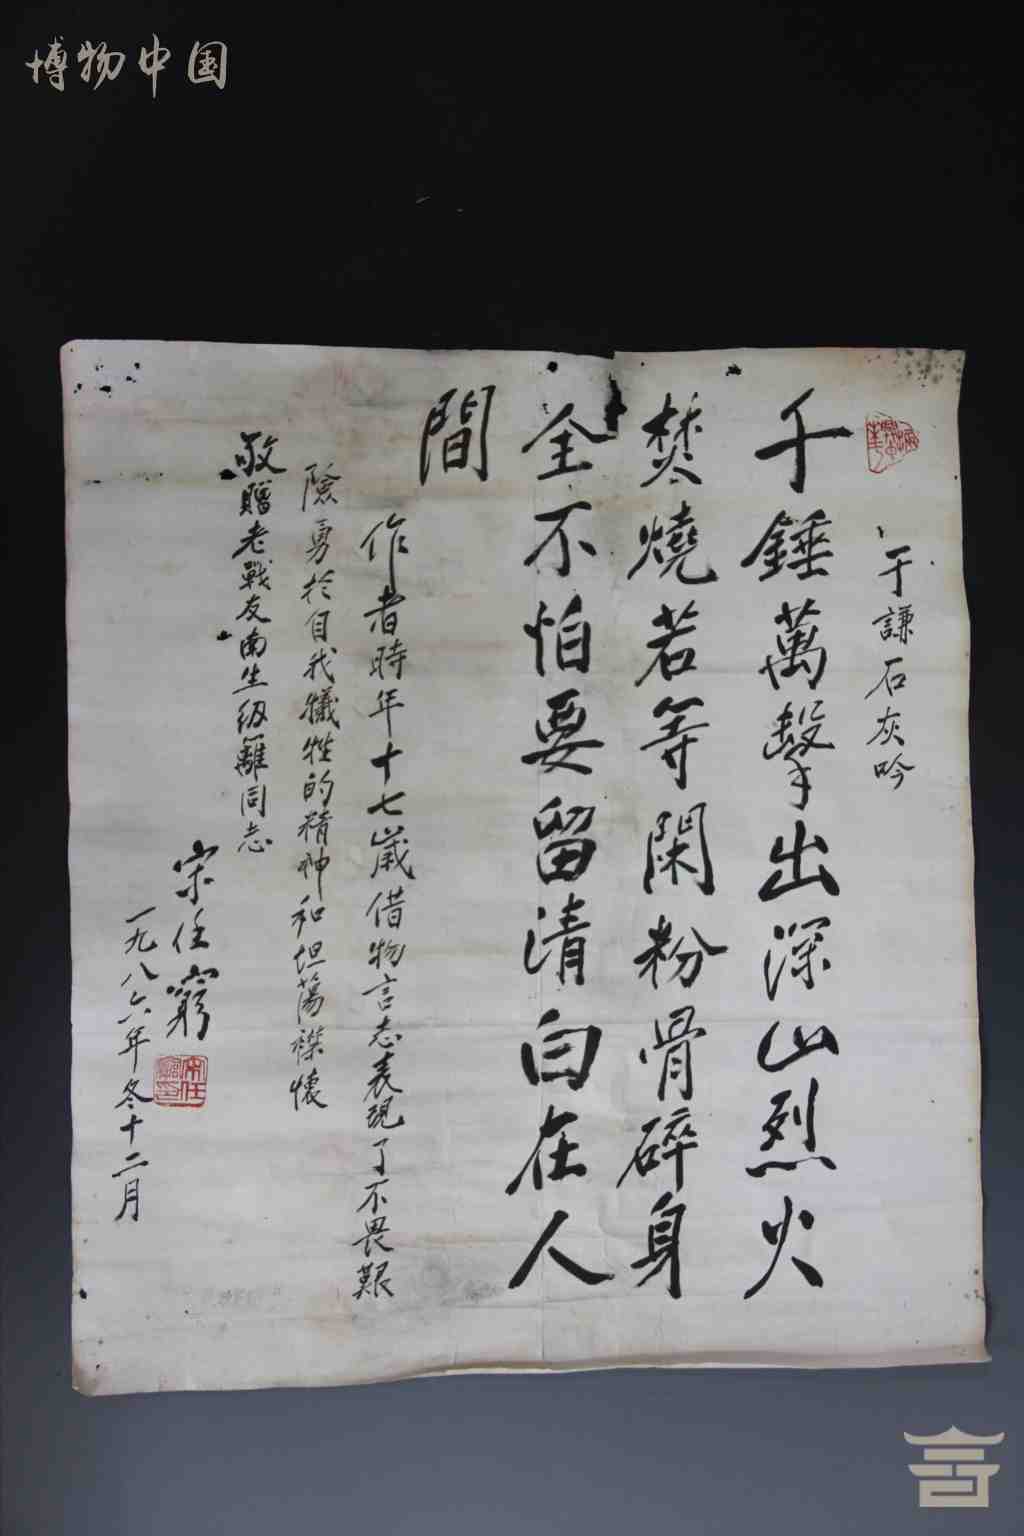 博物中国
于謙石灰吟
千錘萬擊出深山烈火
焚燒若等閑粉骨碎身
全不怕要留清白在人
間
作者時年十七歲借物言志表現了不畏艱
險勇於自我犧牲的精神和坦蕩襟懷
敬贈老戰友南生籬同志
宋任窮
一九八六年冬十二月
宋任窮印